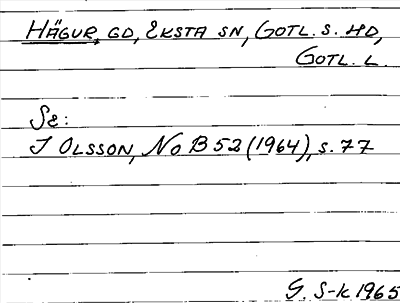 HÄGUR, GD, EKSTA SN, GOTL. S. HD,
GOTL. L.
Se:
I OLSSON, No B 52 (1964), s. 77
G. S-k 1965